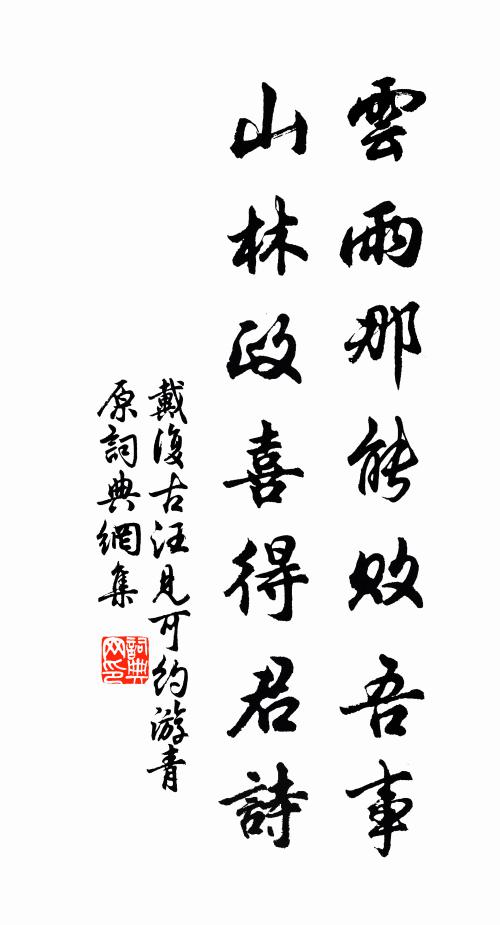 雲雨那能敗吾事
山林政喜得君詩
戴復古汪見可約游青
原詞典網集
詞典
网印